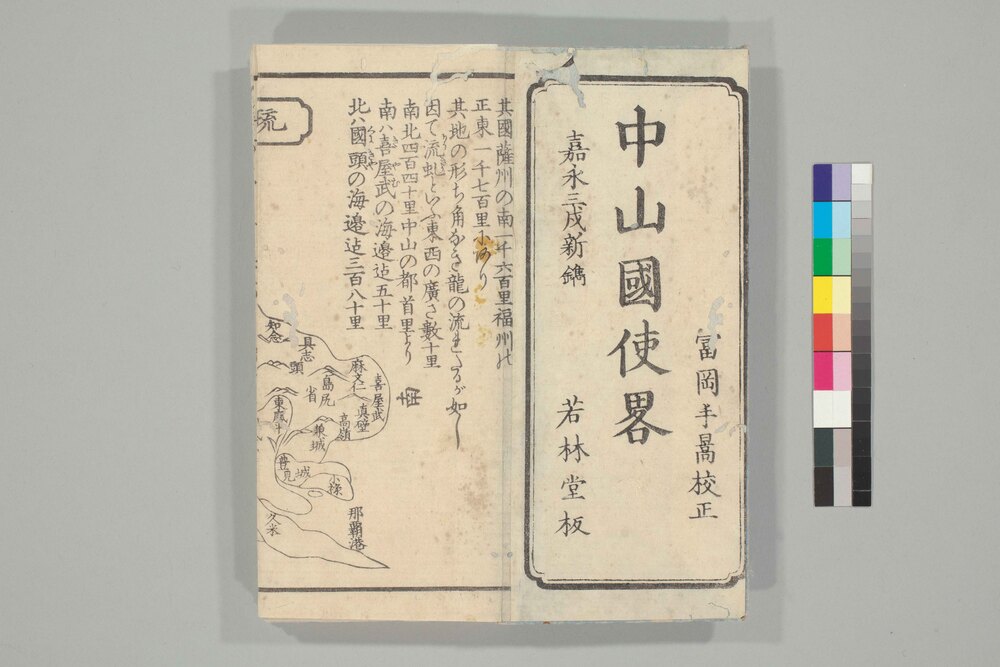 富岡手暠校正
中山國使畧
嘉永三戌新鐫
若林堂板
其國薩州の南一千六百里福州の
正東一千七百里にあり
其地の形ち角なき龍の流るゝが如し
因て流虬といふ東西の廣さ數十里
南北四百四十里中山の都首里より
南ハ喜屋武の海邉迠五十里
北ハ國頭の海邉迠三百八十里
琉
南
喜屋武
真壁
麻文仁
高嶺
島尻
省
兼城
具志
頭
知念
豊見
城
小禄
那覇港
久米